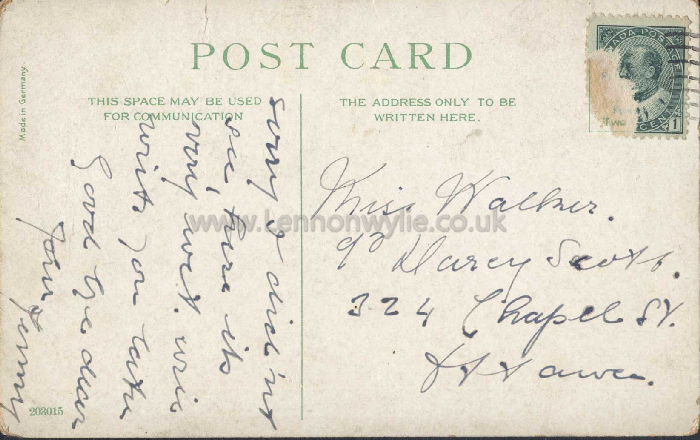 POST CARD
Made in Germany
THIS SPACE MAY BE USED
FOR COMMUNICATION
THE ADDRESS ONLY TO BE
WRITTEN HERE.
CANADA POSTAGE
1
CENT
Sorry I did'nt
see there its
very wet. will
write you later
Good bye dear
Your Jenny
Miss Walker.
c/o Darcy Scott.
324 Chapel St.
Ottawa.
203015
www.Lennonwylie.co.uk